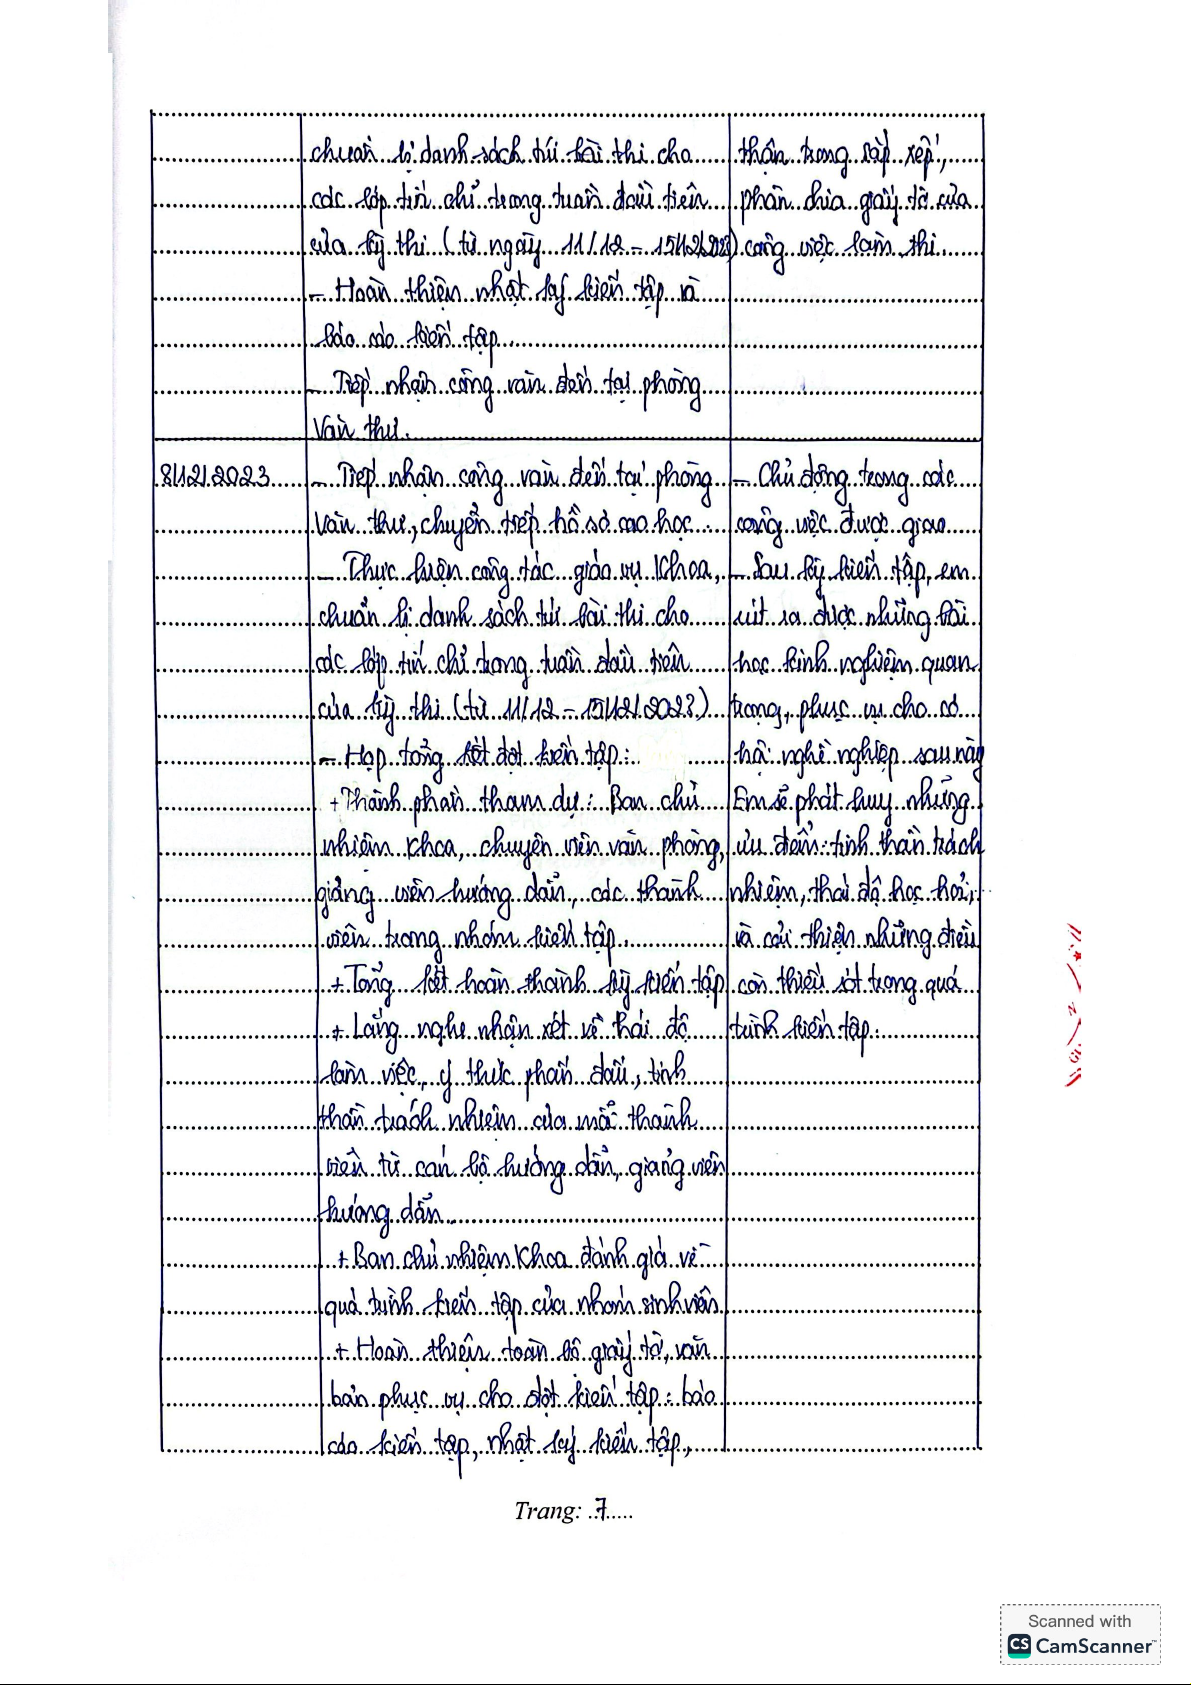 chuẩn bị danh sách túi bài thi cho
các lớp tín chỉ trong tuần đầu tiên
của kỳ thi (từ ngày 11/12 – 15/12/2023)
– Hoàn thiện nhật ký kiến tập và
báo cáo kiến tập.
– Tiếp nhận công văn đến tại phòng
Văn thư.
thận trong sắp xếp,
phân chia giấy tờ của
công việc làm thi.
8/12/2023
– Tiếp nhận công văn đến tại phòng
Văn thư, chuyển tiếp hồ sơ cao học.
– Thực hiện công tác giáo vụ Khoa,
chuẩn bị danh sách túi bài thi cho
các lớp tín chỉ trong tuần đầu tiên
của kỳ thi (từ 11/12 – 15/12/2023)
– Họp tổng kết đợt kiến tập:
+ Thành phần tham dự: Ban chủ
nhiệm Khoa, chuyên viên văn phòng,
giảng viên hướng dẫn, các thành
viên trong nhóm kiến tập.
+ Tổng kết hoàn thành kỳ kiến tập
+ Lắng nghe nhận xét về thái độ
làm việc, ý thức phấn đấu, tinh
thần trách nhiệm của mỗi thành
viên từ cán bộ hướng dẫn, giảng viên
hướng dẫn.
+ Ban chủ nhiệm Khoa đánh giá về
quá trình kiến tập của nhóm sinh viên
+ Hoàn thiện toàn bộ giấy tờ, văn
bản phục vụ cho đợt kiến tập: báo
cáo kiến tập, nhật ký kiến tập,
– Chủ động trong các
công việc được giao
– Sau kỳ kiến tập, em
rút ra được những bài
học kinh nghiệm quan
trọng, phục vụ cho cơ
hội nghề nghiệp sau này
Em sẽ phát huy những
ưu điểm: tinh thần trách
nhiệm, thái độ học hỏi,
và cải thiện những điều
còn thiếu sót trong quá
trình kiến tập.
Trang: 7
Scanned with
CS CamScanner